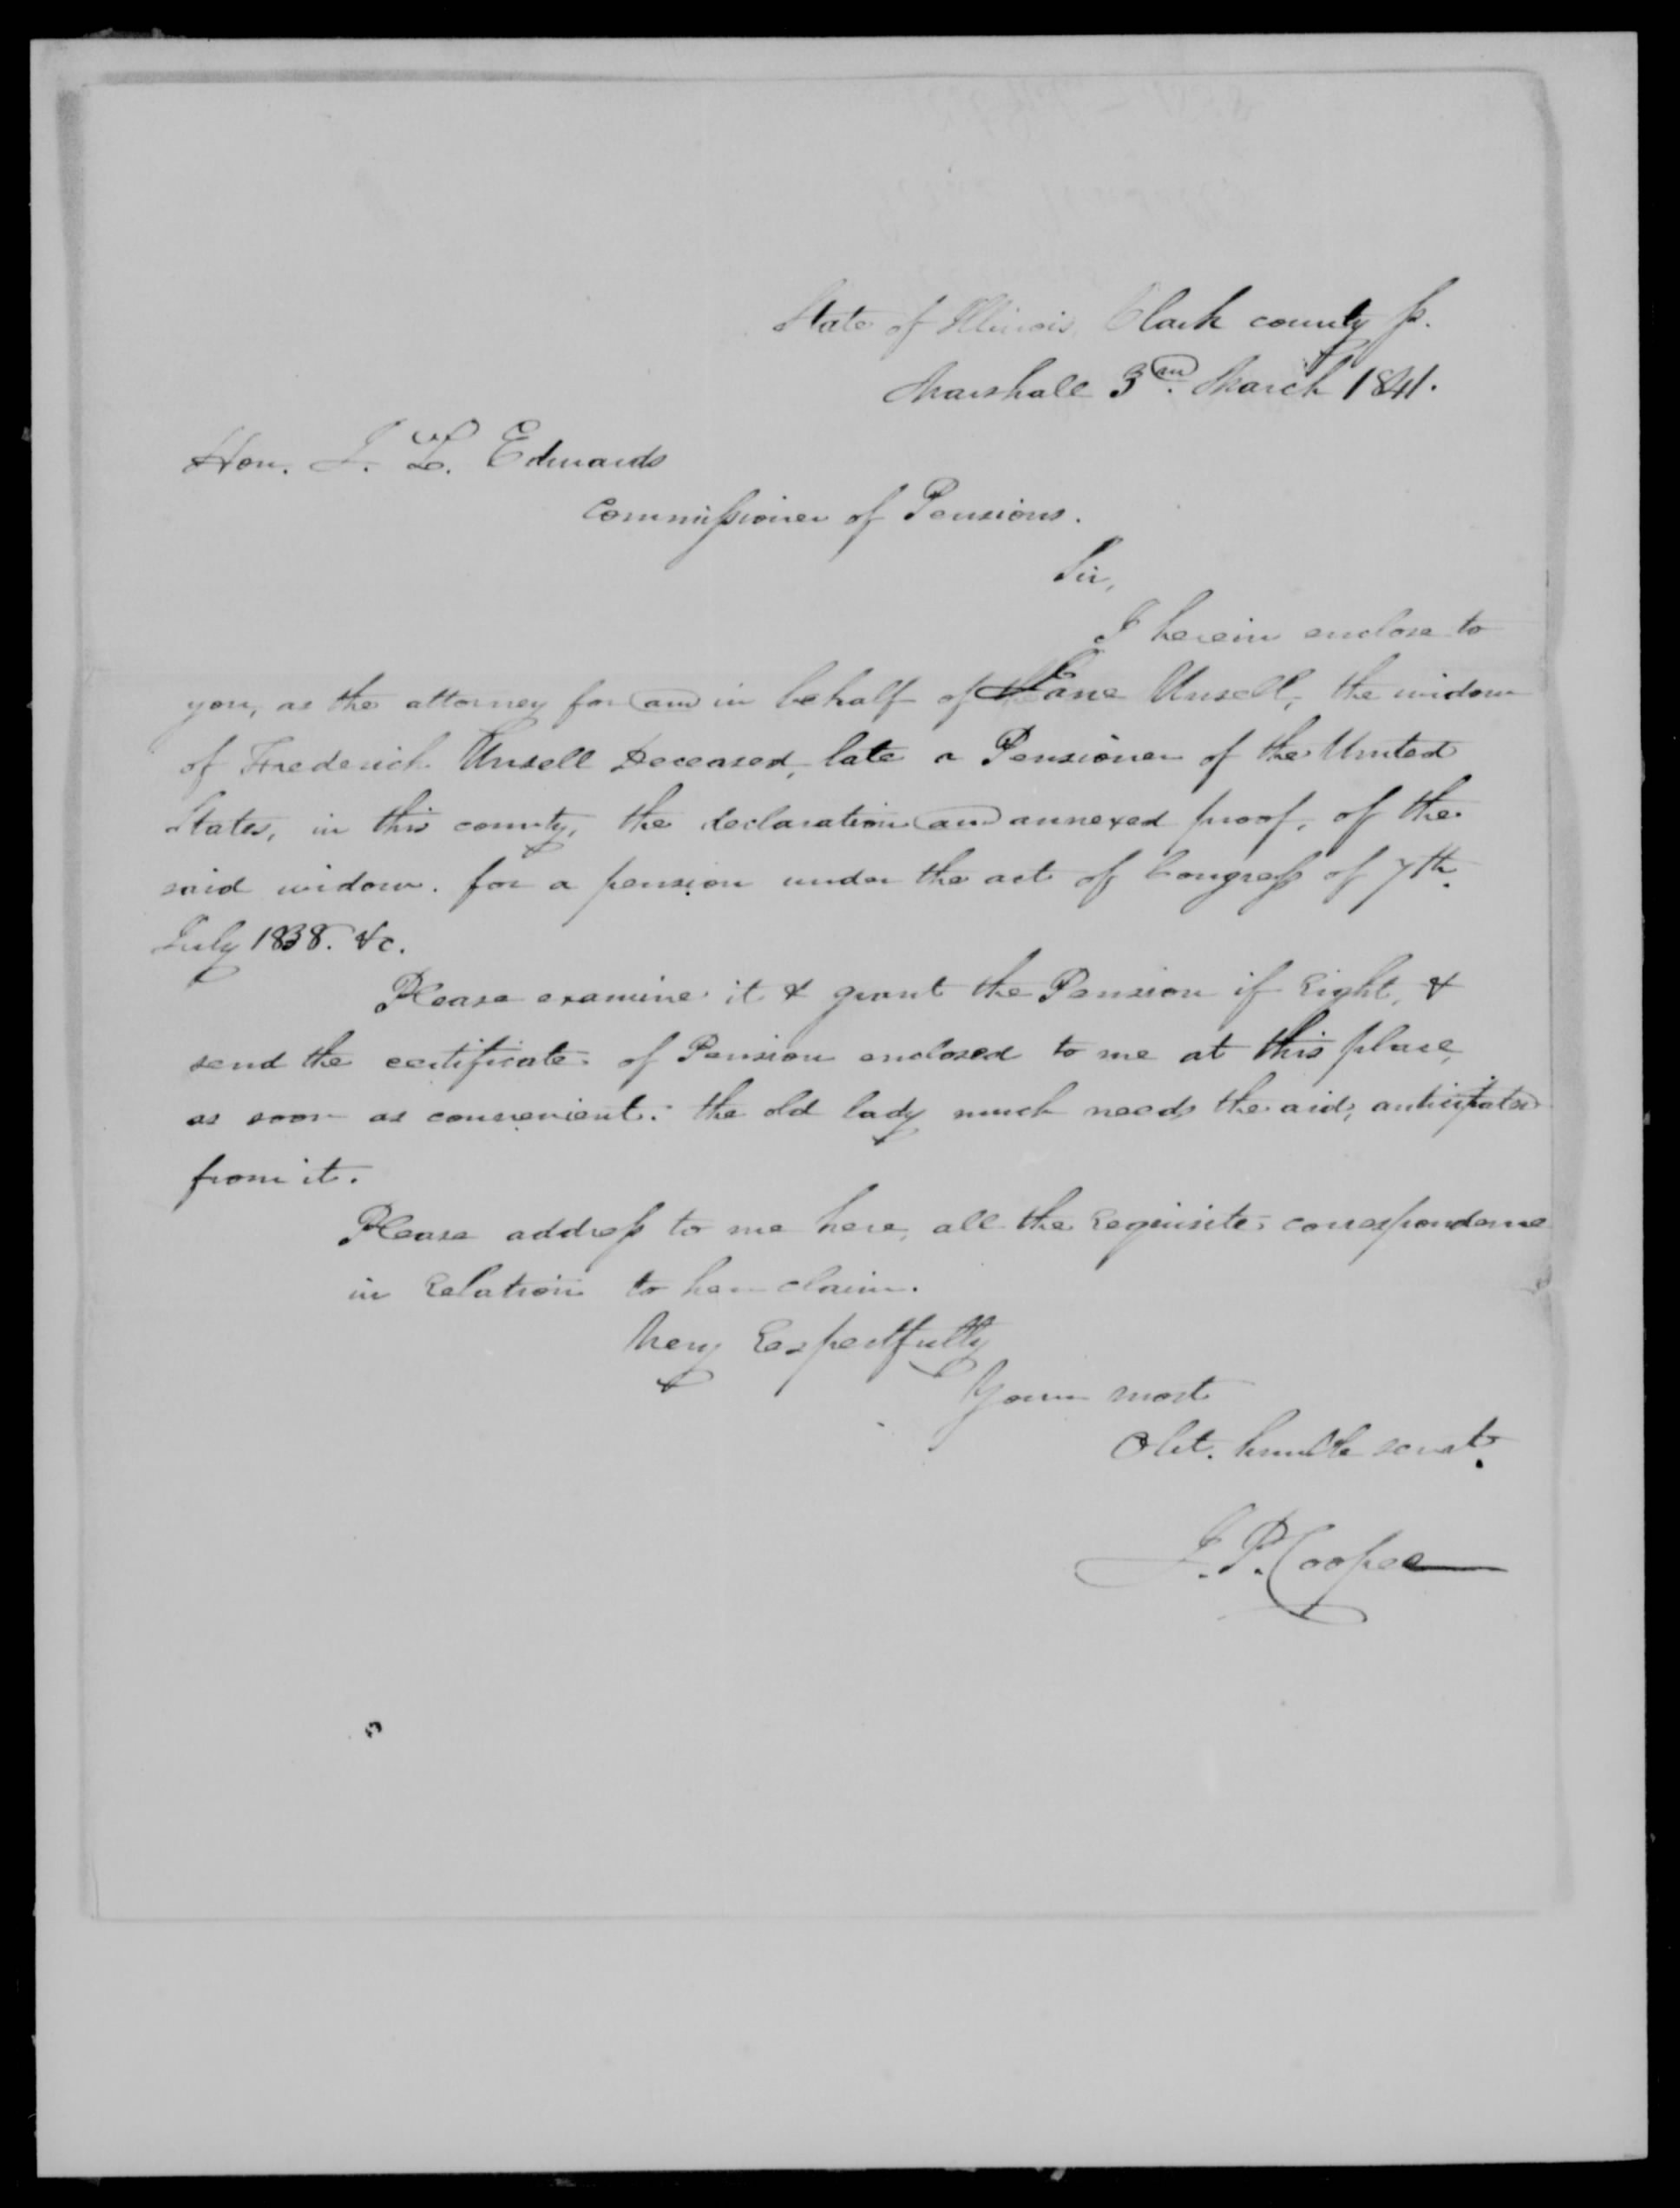 State of Illinois, Clark county ss.
Marshall 3rd. March 1841.
Hon. J. L. Edwards
Commissioner of Pensions.
Sir,
I herein enclose to
you, as the attorney for and in behalf of Jane Unsell, the widow
of Frederick Unsell Deceased, late a Pensioner of the United
States, in this county, the declaration and annexed proof, of the
said widow. for a pension under the act of Congress of 7th.
July 1838. &c.
Please examine it & grant the Pension if Right, &
send the certificate of Pension enclosed to me at this place,
as soon as convenient. the old lady much needs the aid, anticipated
from it.
Please address to me here, all the Requisite correspondence
in Relation to her claim.
Very Respectfully
Your most
Obt. humble servt.
J. P. Cooper